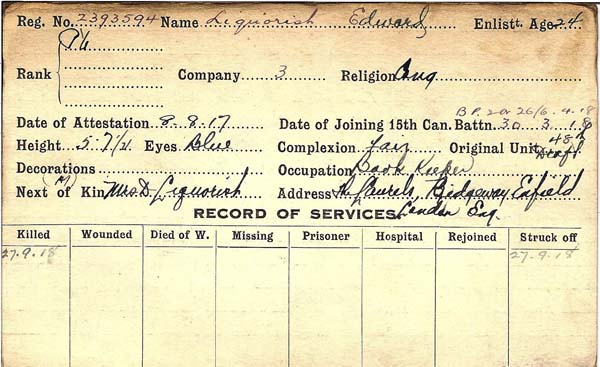 Reg. No. 2393594 Name Liquorish Edward Enlistt. Age 24
Pte
Rank Company 3 Religion Eng
B.P. 2 Or 26/6.4.18
Date of Attestation 8.8.17 Date of Joining 15th Can. Battn. 30.3.18
Height 5.7½ Eyes Blue Complexion Fair Original Unit 48th Draft
Decorations Occupation Book Keeper
(M)
Next of Kin Mrs D. Liquorish Address The Laurels, Ridgeway Enfield
London Eng.
RECORD OF SERVICES
Killed Wounded Died of W. Missing Prisoner Hospital Rejoined Struck off
27.9.18 27.9.18